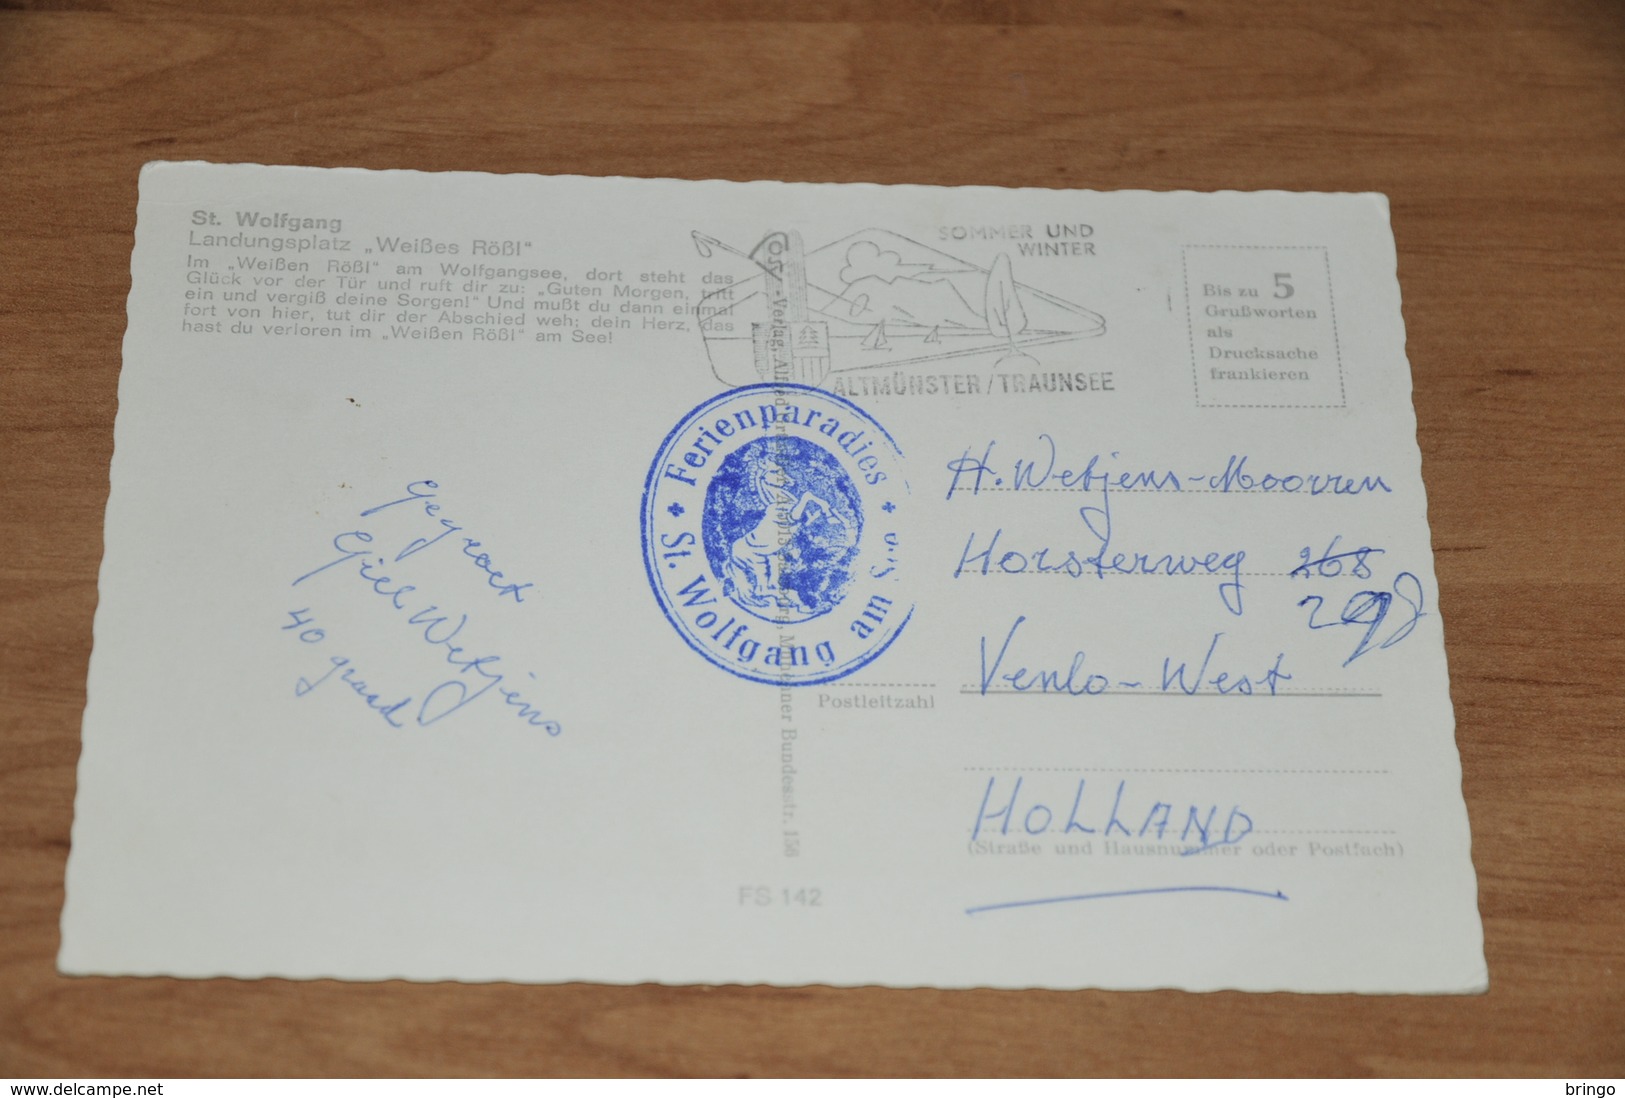 St. Wolfgang
Landungsplatz „Weißes Rößl"
Im „Weißen Rößl" am Wolfgangsee, dort steht das
Glück vor der Tür und ruft dir zu: „Guten Morgen, tritt
ein und vergiß deine Sorgen!" Und mußt du dann einmal
fort von hier, tut dir der Abschied weh; dein Herz, das
hast du verloren im „Weißen Rößl" am See!
SOMMER UND
WINTER
ALTMÜNSTER/TRAUNSEE
Bis zu 5
Grußworten
als
Drucksache
frankieren
Ferienparadies
St. Wolfgang am
-Verlag, Münchner Bundesstr. 156
gegroet
Giel Wetjens
40 graad
H. Wetjens-Moorren
Horsterweg 268
298
Venlo-West
Postleitzahl
HOLLAND
(Straße und Hausnummer oder Postfach)
FS 142
delcampe.net
bringo